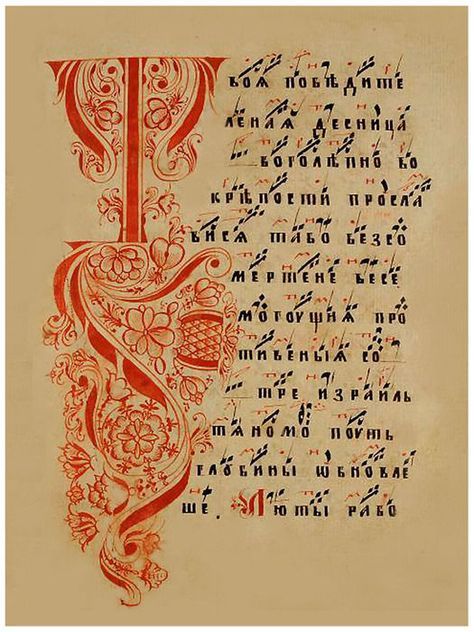 Твоя побѣдите
леная десница
боголѣпно во
крѣпости просла
вися табо безсо
мертене весе
могоущия про
тивеныя со
тре израиль
тяномо поуть
глобины ѡбновле
ше. Люты рабо